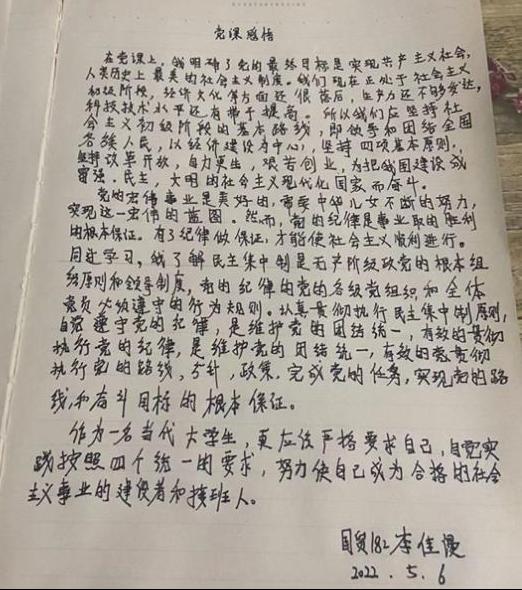 党课感悟
在党课上,我明确了党的最终目标是实现共产主义社会,
人类历史上最美的社会主义制度。我们现在正处于社会主义
初级阶段,经济文化等方面还很落后,生产力还不够发达,
科技技术水平还有待于提高。所以我们应坚持社
会主义初级阶段的基本路线,即领导和团结全国
各族人民,以经济建设为中心,坚持四项基本原则,
坚持改革开放,自力更生,艰苦创业,为把我国建设成
富强、民主,文明的社会主义现代化国家而奋斗。
党的宏伟事业是美好的,需要中华儿女不断的努力,
实现这一宏伟的蓝图。然而,党的纪律是事业取的胜利
的根本保证。有了纪律做保证,才能使社会主义顺利进行。
同过学习,我了解民主集中制是无产阶级政党的根本组
织原则和领导制度,党的纪律的党的各级党组织和全体
党员必须遵守的行为规则。认真贯彻执行民主集中制原则,
自觉遵守党的纪律,是维护党的团结统一,有效的贯彻
执行党的纪律,是维护党的团结统一,有效的党贯彻
执行党的路线,方针,政策,完成党的任务,实现党的路
线,和奋斗目标的根本保证。
作为一名当代大学生,更应该严格要求自己,自觉实
践按照四个统一的要求,努力使自己成为合格的社会
主义事业的建设者和接班人。
国贸182李佳慢
2022.5.6